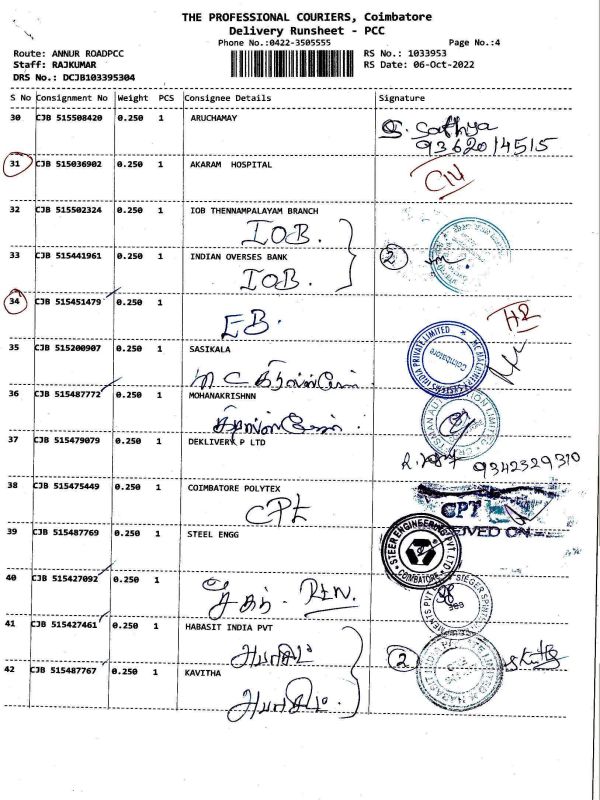 THE PROFESSIONAL COURIERS, Coimbatore
Delivery Runsheet - PCC
Phone No.:0422-3505555 Page No.:4
Route: ANNUR ROADPCC RS No.: 1033953
Staff: RAJKUMAR RS Date: 06-Oct-2022
DRS No.: DCJB103395304
S No Consignment No Weight PCS Consignee Details Signature
30 CJB 515508420 0.250 1 ARUCHAMAY
S. Sathya
9362014515
31 CJB 515036902 0.250 1 AKARAM HOSPITAL
C14
32 CJB 515502324 0.250 1 IOB THENNAMPALAYAM BRANCH
IOB.
33 CJB 515441961 0.250 1 INDIAN OVERSES BANK
2
IOB.
34 CJB 515451479 0.250 1
EB.
35 CJB 515200907 0.250 1 SASIKALA
Coimbatore
M.C
36 CJB 515487772 0.250 1 MOHANAKRISHNN
37 CJB 515479079 0.250 1 DEKLIVERY P LTD
9342329310
38 CJB 515475449 0.250 1 COIMBATORE POLYTEX
CPT
39 CJB 515487769 0.250 1 STEEL ENGG
STEER ENGINEERING PVT. LTD
COIMBATORE
40 CJB 515427092 0.250 1
41 CJB 515427461 0.250 1 HABASIT INDIA PVT
2
42 CJB 515487767 0.250 1 KAVITHA